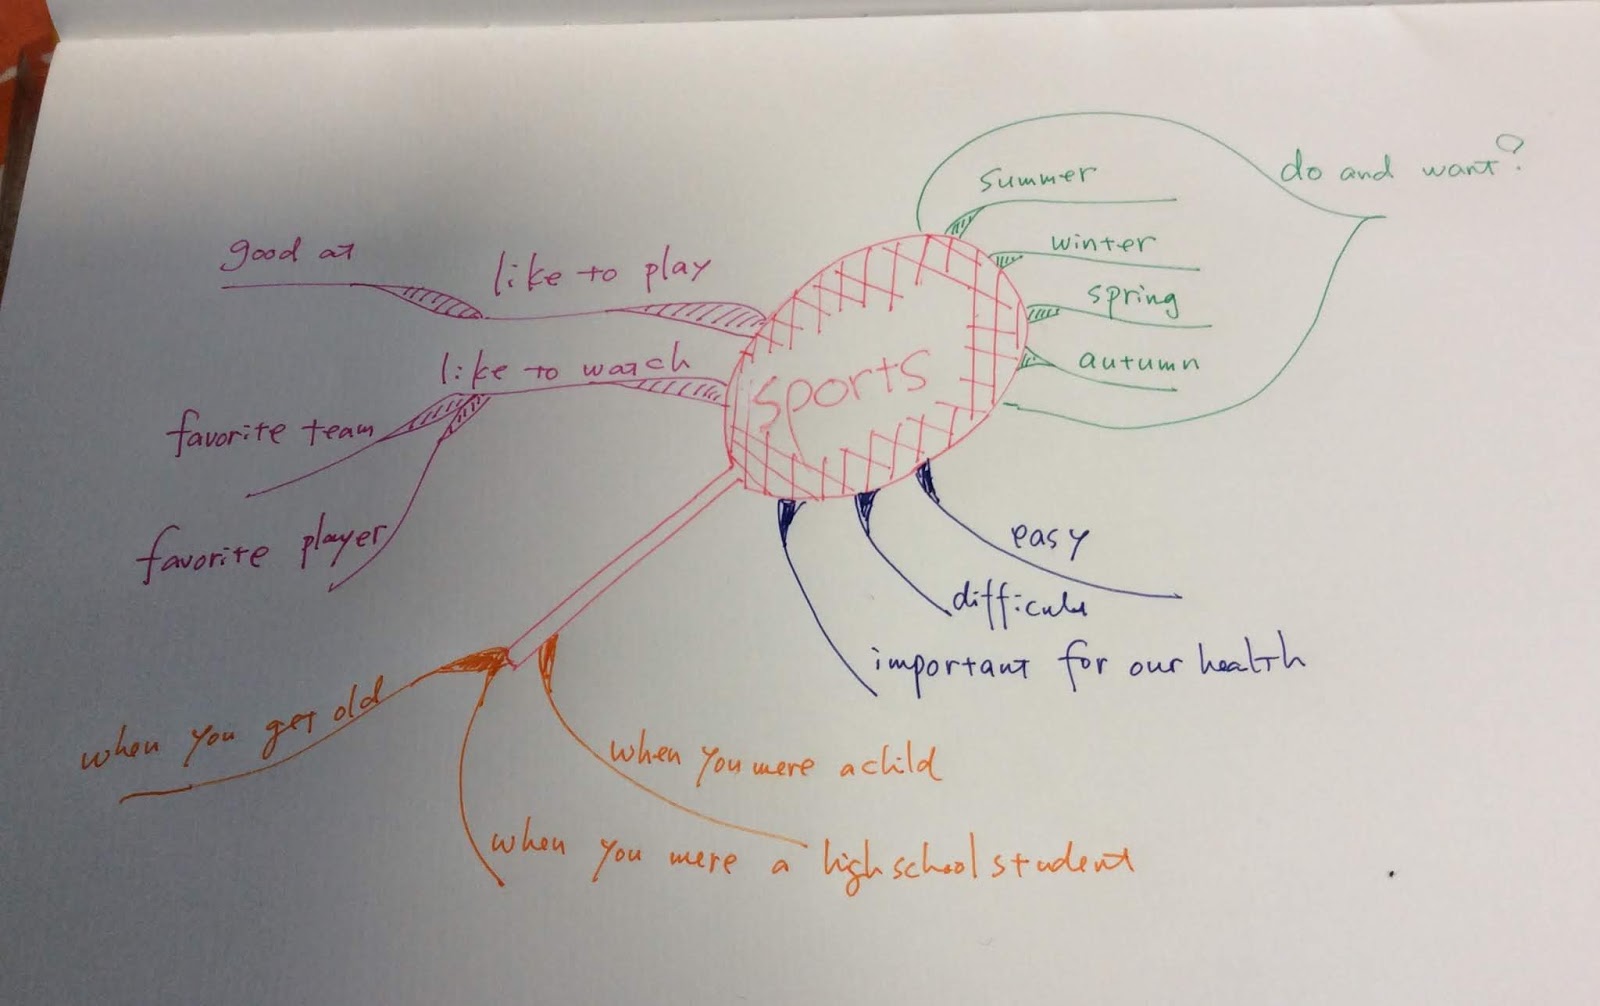 sports
summer
winter
spring
autumn
do and want?
good at
like to play
like to watch
favorite team
favorite player
easy
difficult
important for our health
when you get old
when you were a child
when you were a high school student